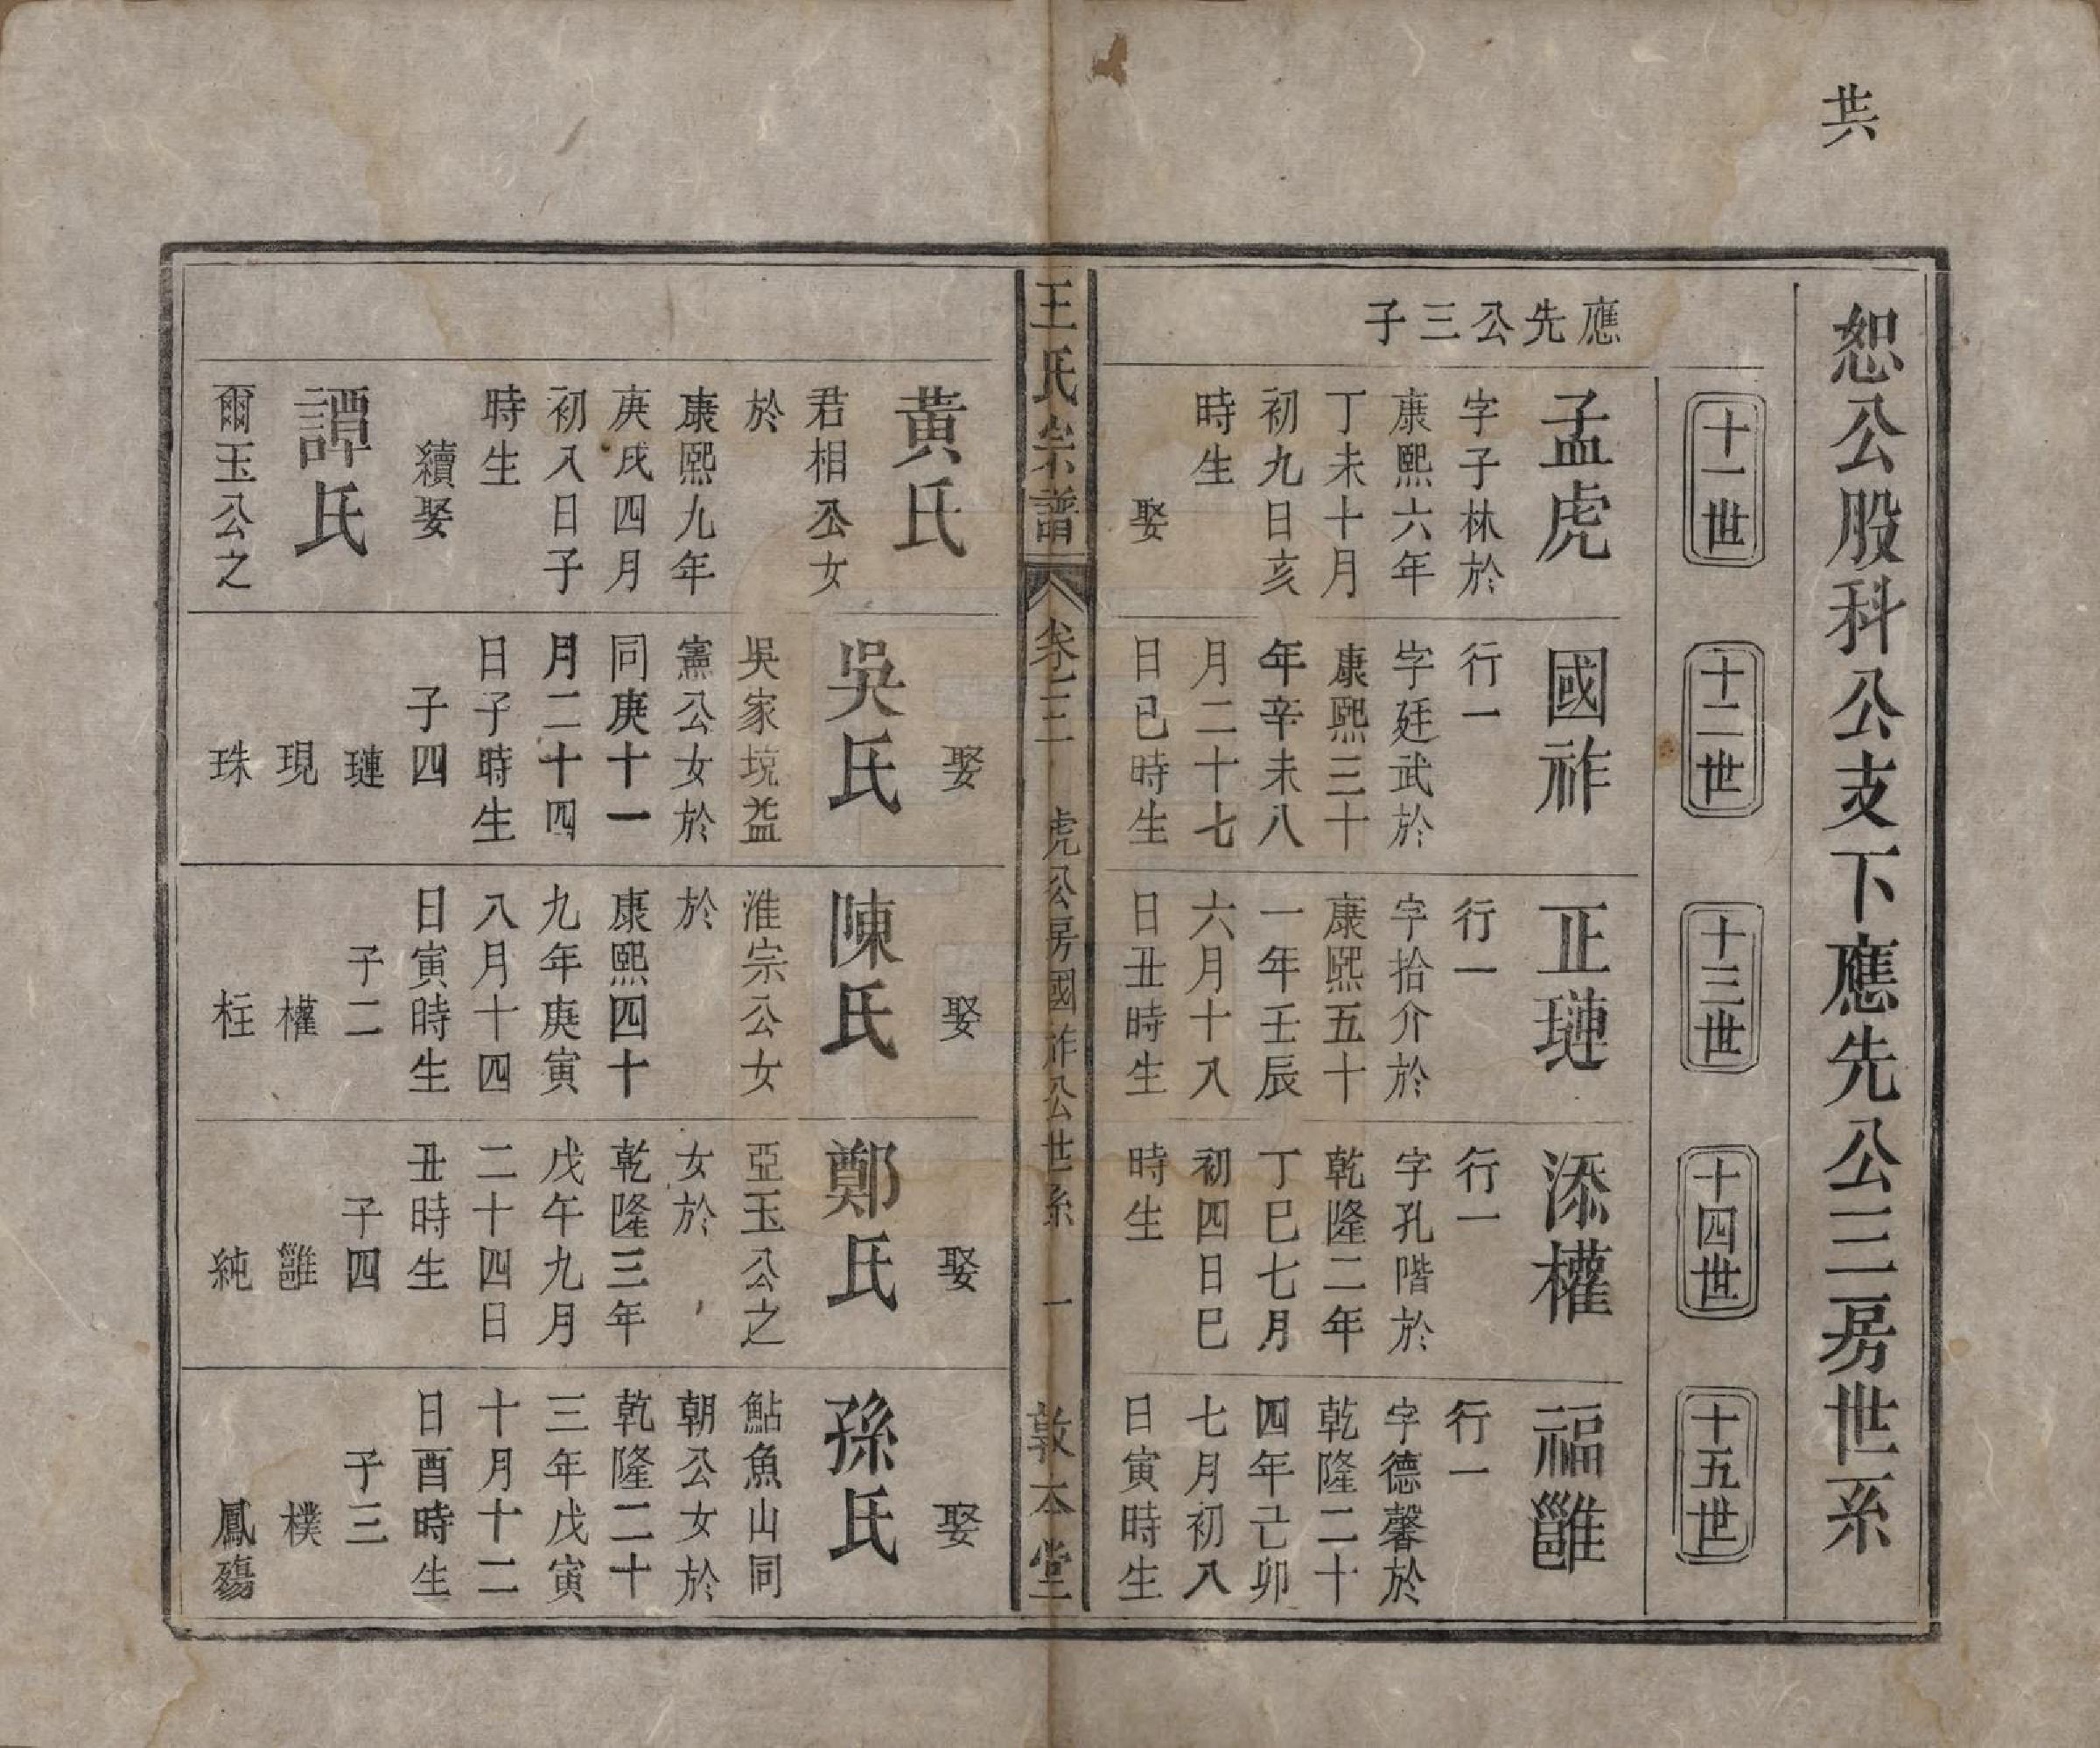 共
恕公股科公支下應先公三房世系
十一世
十二世
十三世
十四世
十五世
應先公三子
孟虎
字子林於
康熙六年
丁未十月
初九日亥
時生
娶
國祚
行一
字廷武於
康熙三十
年辛未八
月二十七
日巳時生
正璉
行一
字拾介於
康熙五十
一年壬辰
六月十八
日丑時生
添權
行一
字孔階於
乾隆二年
丁巳七月
初四日巳
時生
福雝
行一
字德馨於
乾隆二十
四年己卯
七月初八
日寅時生
王氏宗譜
卷之二
虎公房國祚公世系
一
敦本堂
黃氏
君相公女
於
康熙九年
庚戌四月
初八日子
時生
續娶
譚氏
爾玉公之
娶
吳氏
吳家境益
憲公女於
同庚十一
月二十四
日子時生
子四
璉
現
珠
娶
陳氏
淮宗公女
於
康熙四十
九年庚寅
八月十四
日寅時生
子二
權
枉
娶
鄭氏
亞玉公之
女於
乾隆三年
戊午九月
二十四日
丑時生
子四
雝
純
娶
孫氏
鮎魚山同
朝公女於
乾隆二十
三年戊寅
十月十二
日酉時生
子三
樸
鳳殤